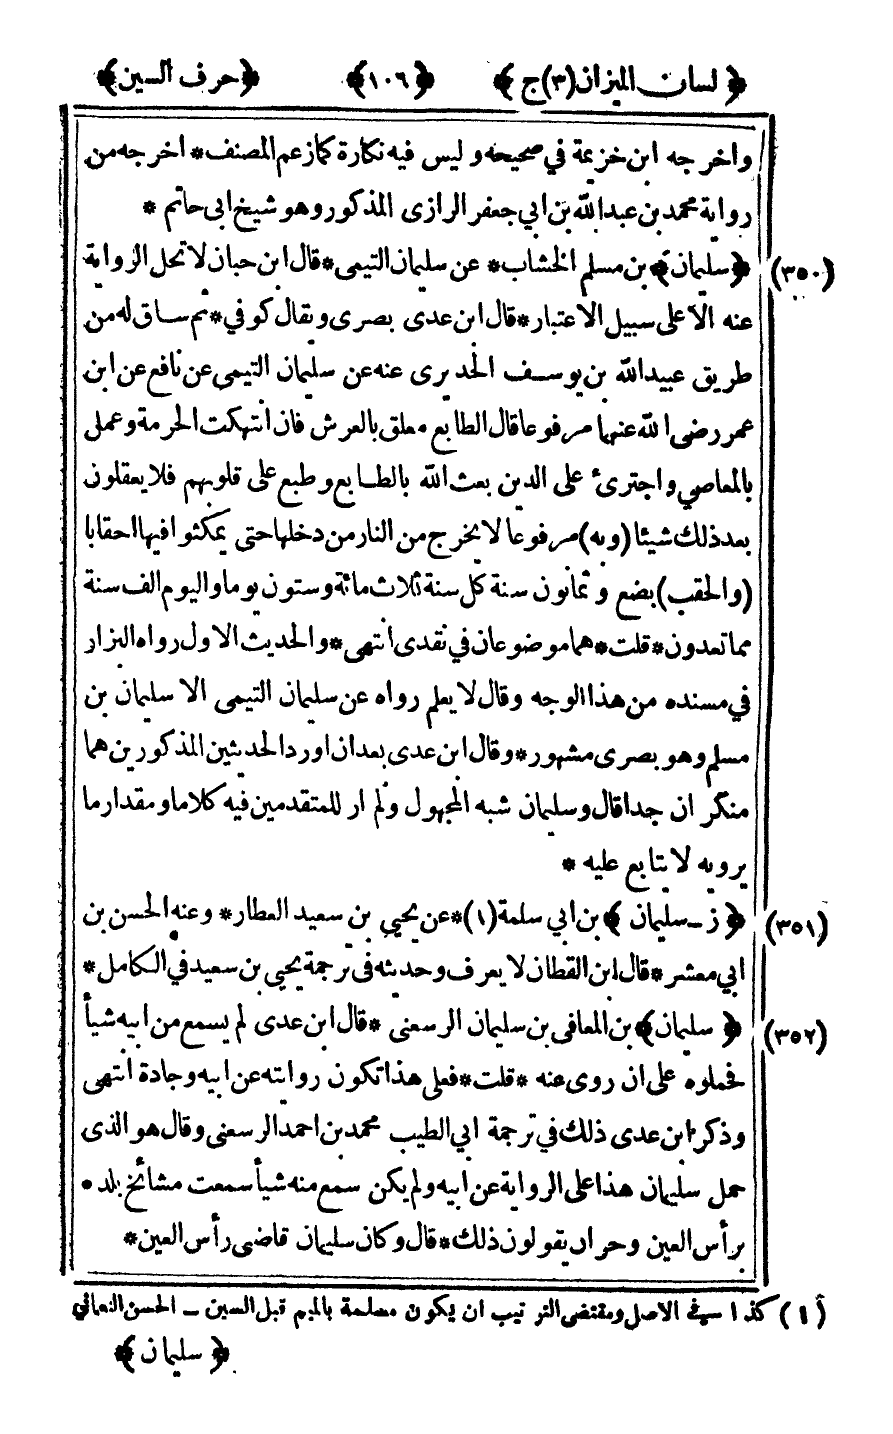 ﴿ لسان الميزان (٣) ج ﴾ ﴿١٠٦﴾ ﴿حرف السين﴾
واخرجه ابن خزيمة في صحيحه وليس فيه نكارة كما زعم المصنف * اخرجه من
رواية محمد بن عبدالله بن ابي جعفر الرازي المذكور وهو شيخ ابي حاتم *
(٣٥٠) ﴿سليمان﴾ بن مسلم الخشاب * عن سليمان التيمى * قال ابن حبان لا تحل الرواية
عنه الا على سبيل الاعتبار * قال ابن عدى بصرى ويقال كوفي * ثم ساق له من
طريق عبيدالله بن يوسف الحديرى عنه عن سليمان التيمى عن نافع عن ابن
عمر رضى الله عنهما مرفوعا قال الطابع معلق بالعرش فان انتهكت الحرمة وعمل
بالمعاصي واجترئ على الدين بعث الله بالطابع وطبع على قلوبهم فلا يعقلون
بعد ذلك شيئا (وبه) مرفوعا لا يخرج من النار من دخلها حتى يمكثوا فيها احقابا
(والحقب) بضع وثمانون سنة كل سنة ثلاث مائة وستون يوما واليوم الف سنة
مما تعدون * قلت * هما موضوعان في نقدى انتهى * والحديث الاول رواه البزار
في مسنده من هذا الوجه وقال لا يعلم رواه عن سليمان التيمى الا سليمان بن
مسلم وهو بصرى مشهور * وقال ابن عدى بعد ان اورد الحديثين المذكورين هما
منكر ان جدا قال وسليمان شبه المجهول ولم ار للمتقدمين فيه كلاما ومقدار ما
يرويه لا يتابع عليه *
(٣٥١) ﴿ ز ـ سليمان ﴾ بن ابي سلمة (١) * عن يحيى بن سعيد العطار * وعنه الحسن بن
ابي معشر * قال ابن القطان لا يعرف وحديثه فى ترجمة يحيى بن سعيد في الكامل *
(٣٥٢) ﴿ سليمان﴾ بن المعافى بن سليمان الرسعنى * قال ابن عدى لم يسمع من ابيه شيأ
فحملوه على ان روى عنه * قلت * فعلى هذا تكون روايته عن ابيه وجادة انتهى
وذكر ابن عدى ذلك في ترجمة ابي الطيب محمد بن احمد الرسعنى وقال هو الذى
حمل سليمان هذا على الرواية عن ابيه ولم يكن سمع منه شيأ سمعت مشائخ بلد •
برأس العين وحران يقولون ذلك * قال وكان سليمان قاضى رأس العين *
(١) كذا في الاصل ومقتضى الترتيب ان يكون مسلمة بالميم قبل السين ــ الحسن النعماني
﴿ سليمان ﴾